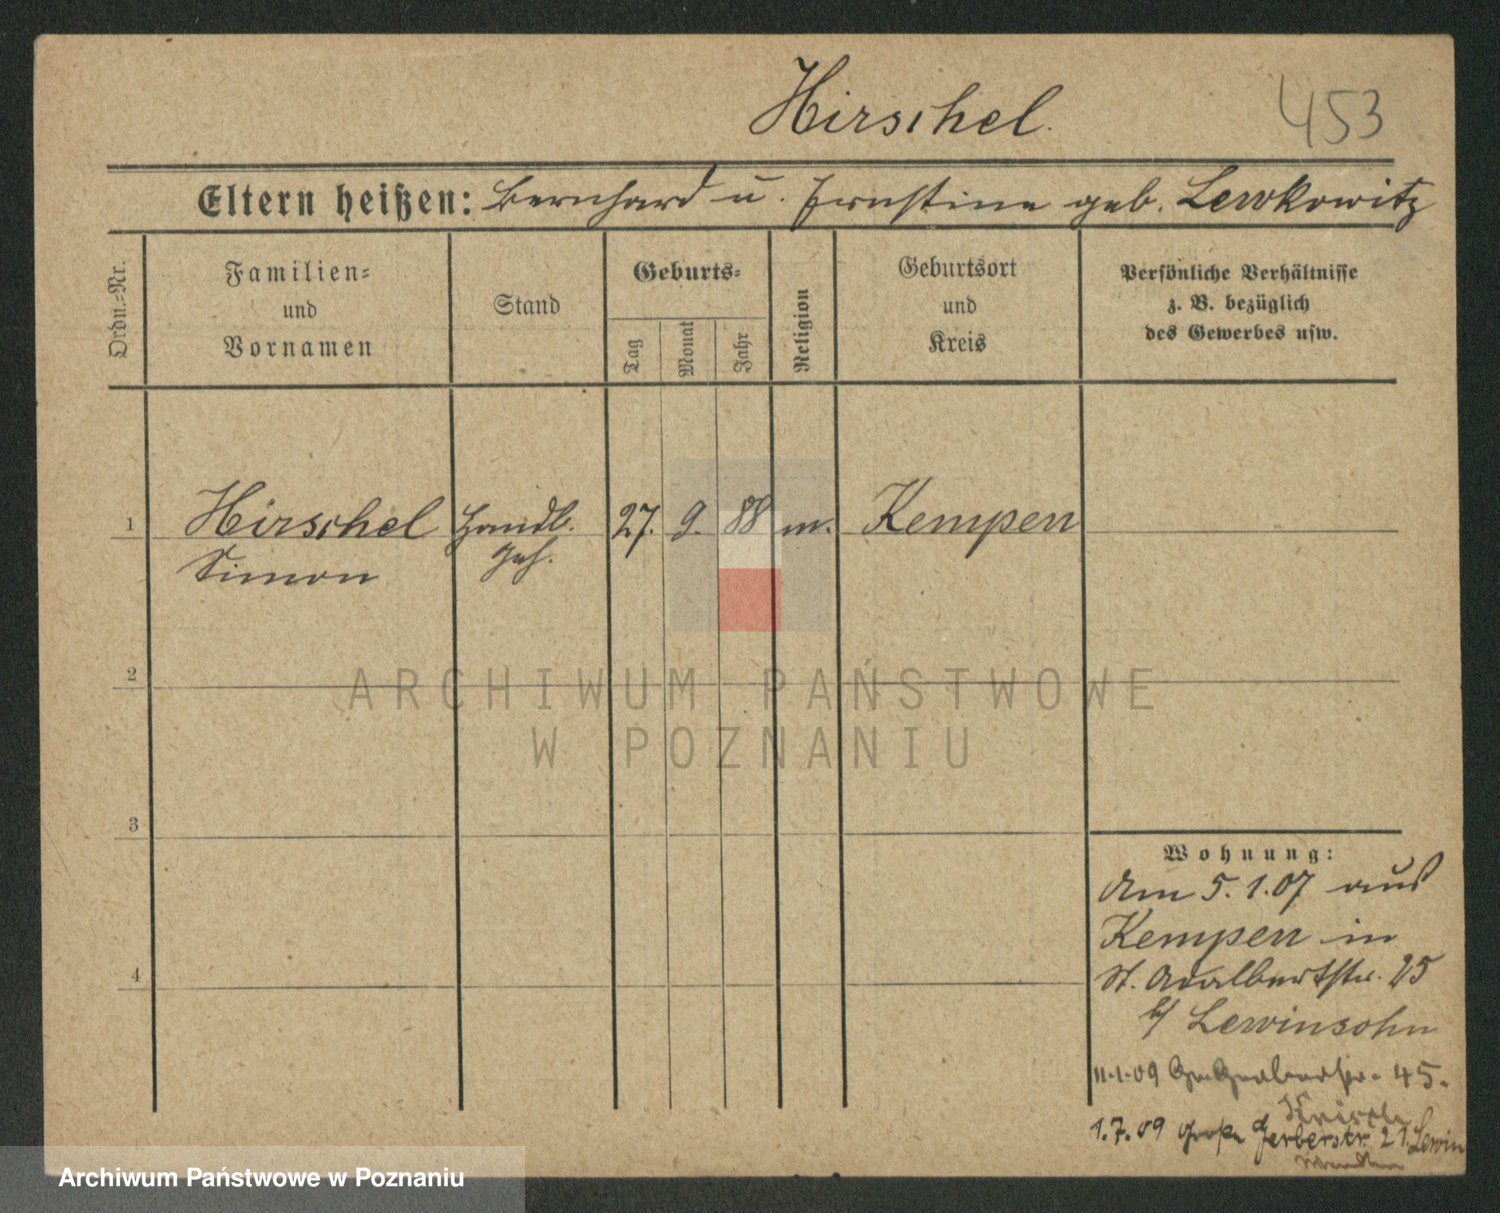 Hirschel.
453
Eltern heißen: Bernhard u. Ernstine geb. Lewkowitz
Ordn.-Nr.
Familien-
und
Vornamen
Stand
Geburts-
Tag
Monat
Jahr
Religion
Geburtsort
und
Kreis
Persönliche Verhältnisse
z. B. bezüglich
des Gewerbes usw.
1 Hirschel Handl. 27. 9. 88 m. Kempen
Simon Geh.
2
ARCHIWUM PAŃSTWOWE
W POZNANIU
3
4
Wohnung:
Am 5.1.07 aus
Kempen in
St. Adalbertstr. 25
b/ Lewinsohn
11.1.09 Gr. Gerberstr. 45.
1.7.09 Große Gerberstr. 21. Lewin
Archiwum Państwowe w Poznaniu